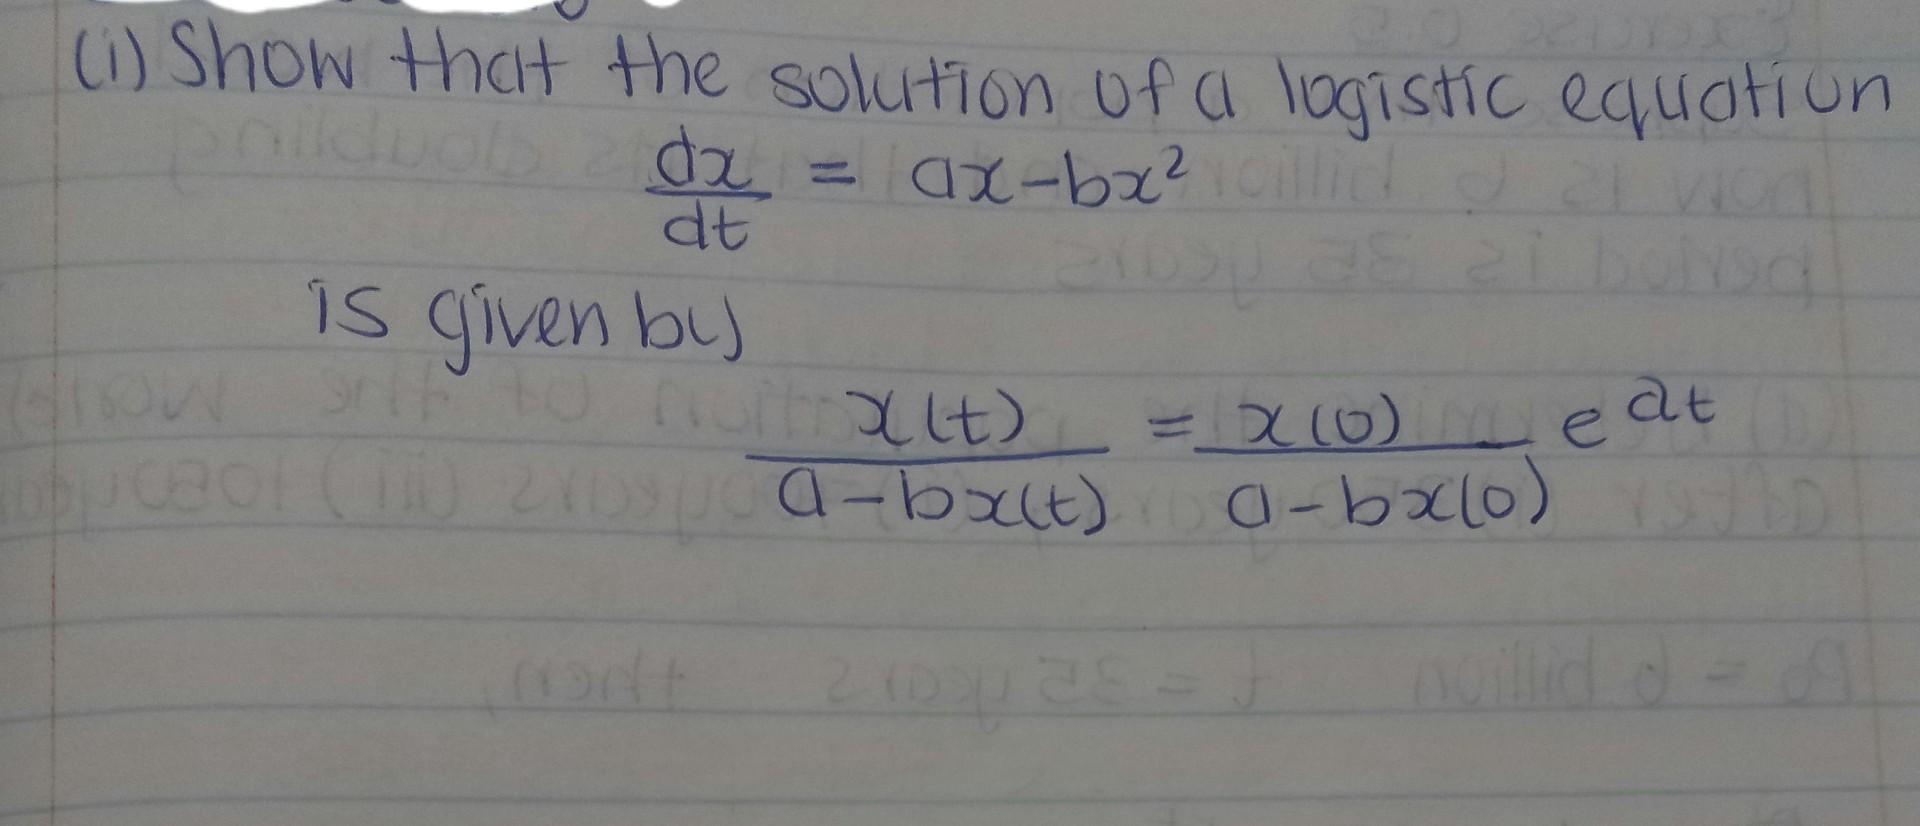 (i) Show that the solution of a logistic equation
dx/dt = ax-bx²
is given by
x(t)/a-bx(t) = x(0)/a-bx(0) e^at